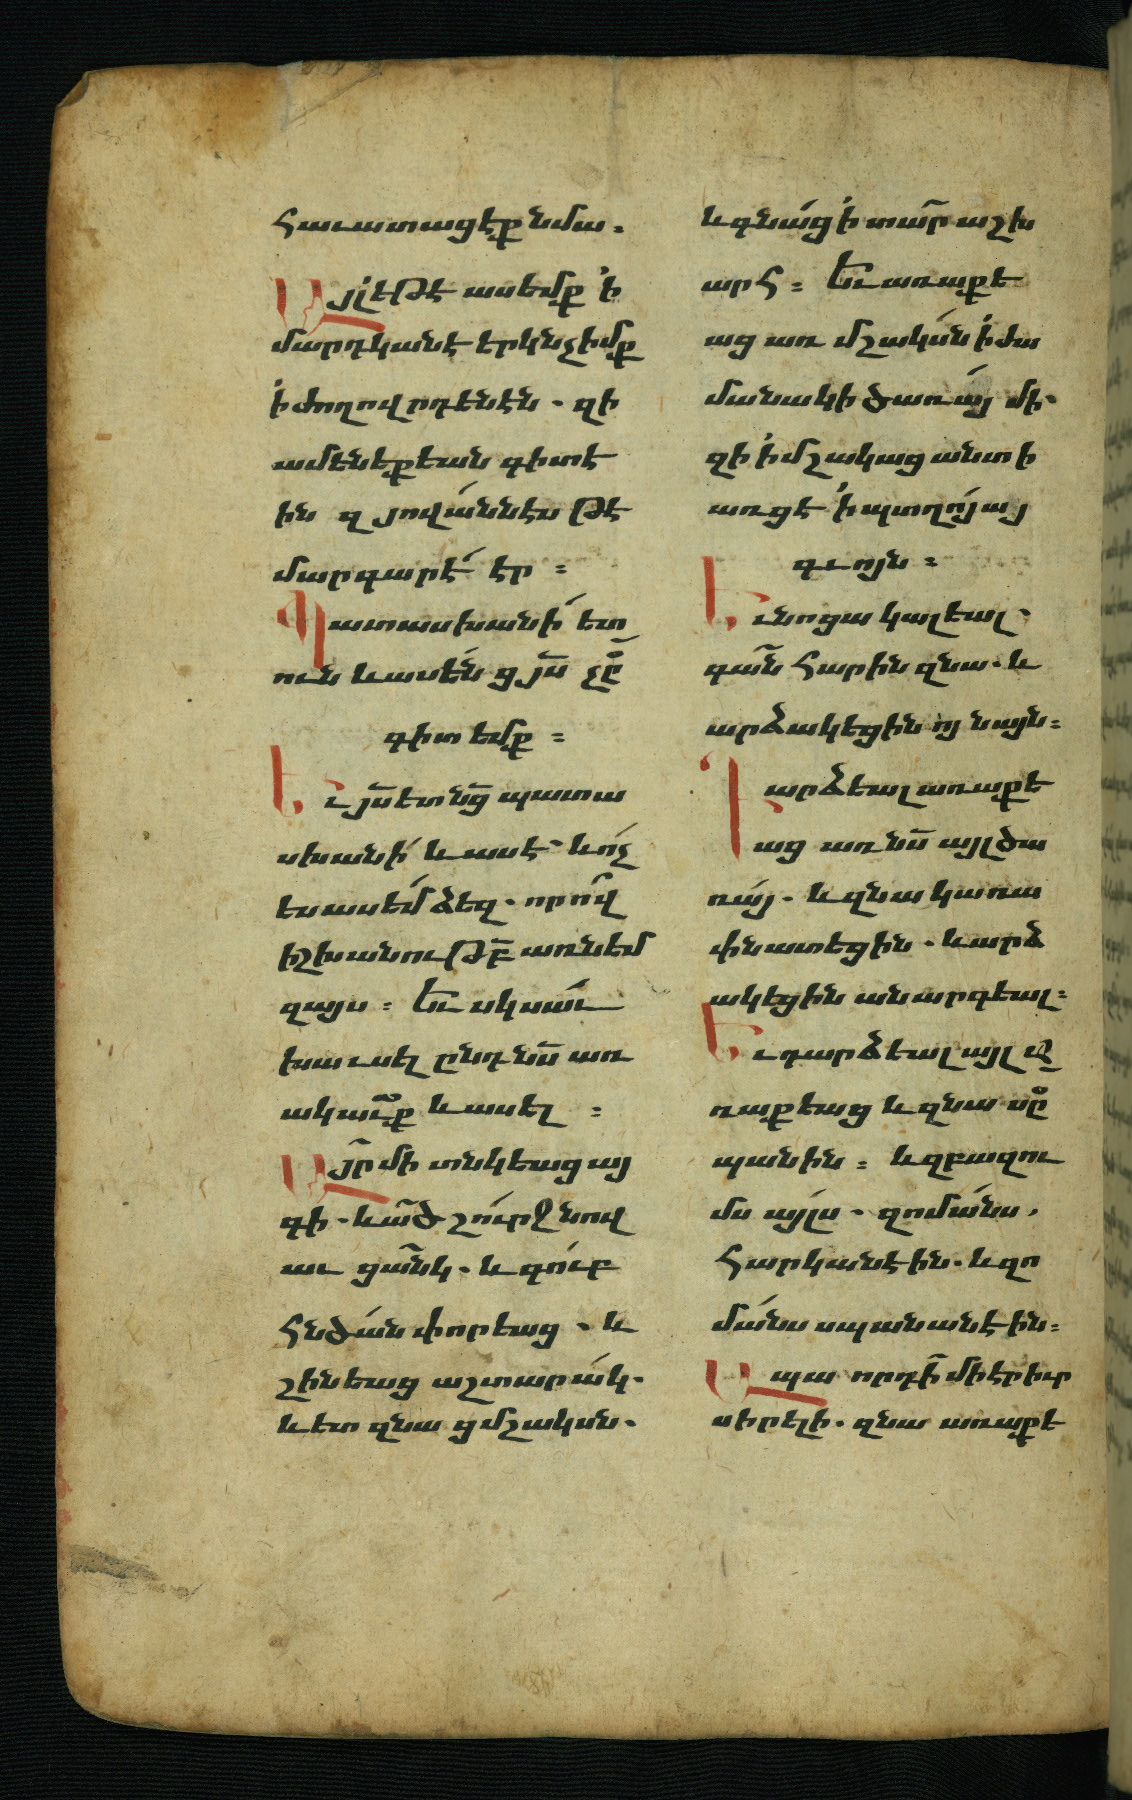 հաւատացէք նմա.
Այլ եթէ ասեմք ՛ի
մարդկանէ երկնչիմք
՛ի ժողովրդենէն. զի
ամենեքեան գիտէ
ին զյովաննէս թէ
մարգարէ էր :
Պատասխանի ետ
ուն և ասեն ցյս չը
գիտեմք :
Եւ յս ետ նց պատա
սխանի և ասէ. և ոչ
ես ասեմ ձեզ. որով
իշխանութբ առնեմ
զայս : Եւ սկսաւ
խաւսել ընդ նս առ
ակաւք և ասել :
Այր մի տնկեաց այ
գի. և ած շուրջ նով
աւ ցանկ. և գուբ
հնձան փորեաց. և
շինեաց աշտարակ.
և ետ զնա ցմշակսն.
և գնաց ՛ի տար աշխ
արհ : Եւ առաքե
աց առ մշակսն ՛ի ժա
մանակի ծառայ մի.
զի ՛ի մշակաց անտի
առցէ ՛ի պտղոյ այ
գւոյն :
Եւ նոցա կալեալ.
գան հարին զնա. և
արձակեցին ոյ նայն :
Դարձեալ առաքե
աց առ նս այլ ծա
ռայ. և զնա կառա
փնատեցին. և արձ
ակեցին անարգեալ :
Եւ դարձեալ այլ ա
ռաքեաց և զնա սը
պանին : և զբազու
մս այլս. զոմանս,
հարկանէին. և զո
մանս սպանանէին :
Ապա որդի մի էր իւր
սիրելի. զնա առաքէ